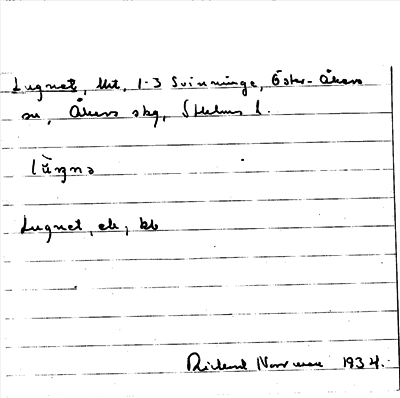 Lugnet, lht, 1-3 Svinninge, Öster-Åkers
sn, Åkers skg, Sthlms l.
Lugnet, ek, kb
1934.